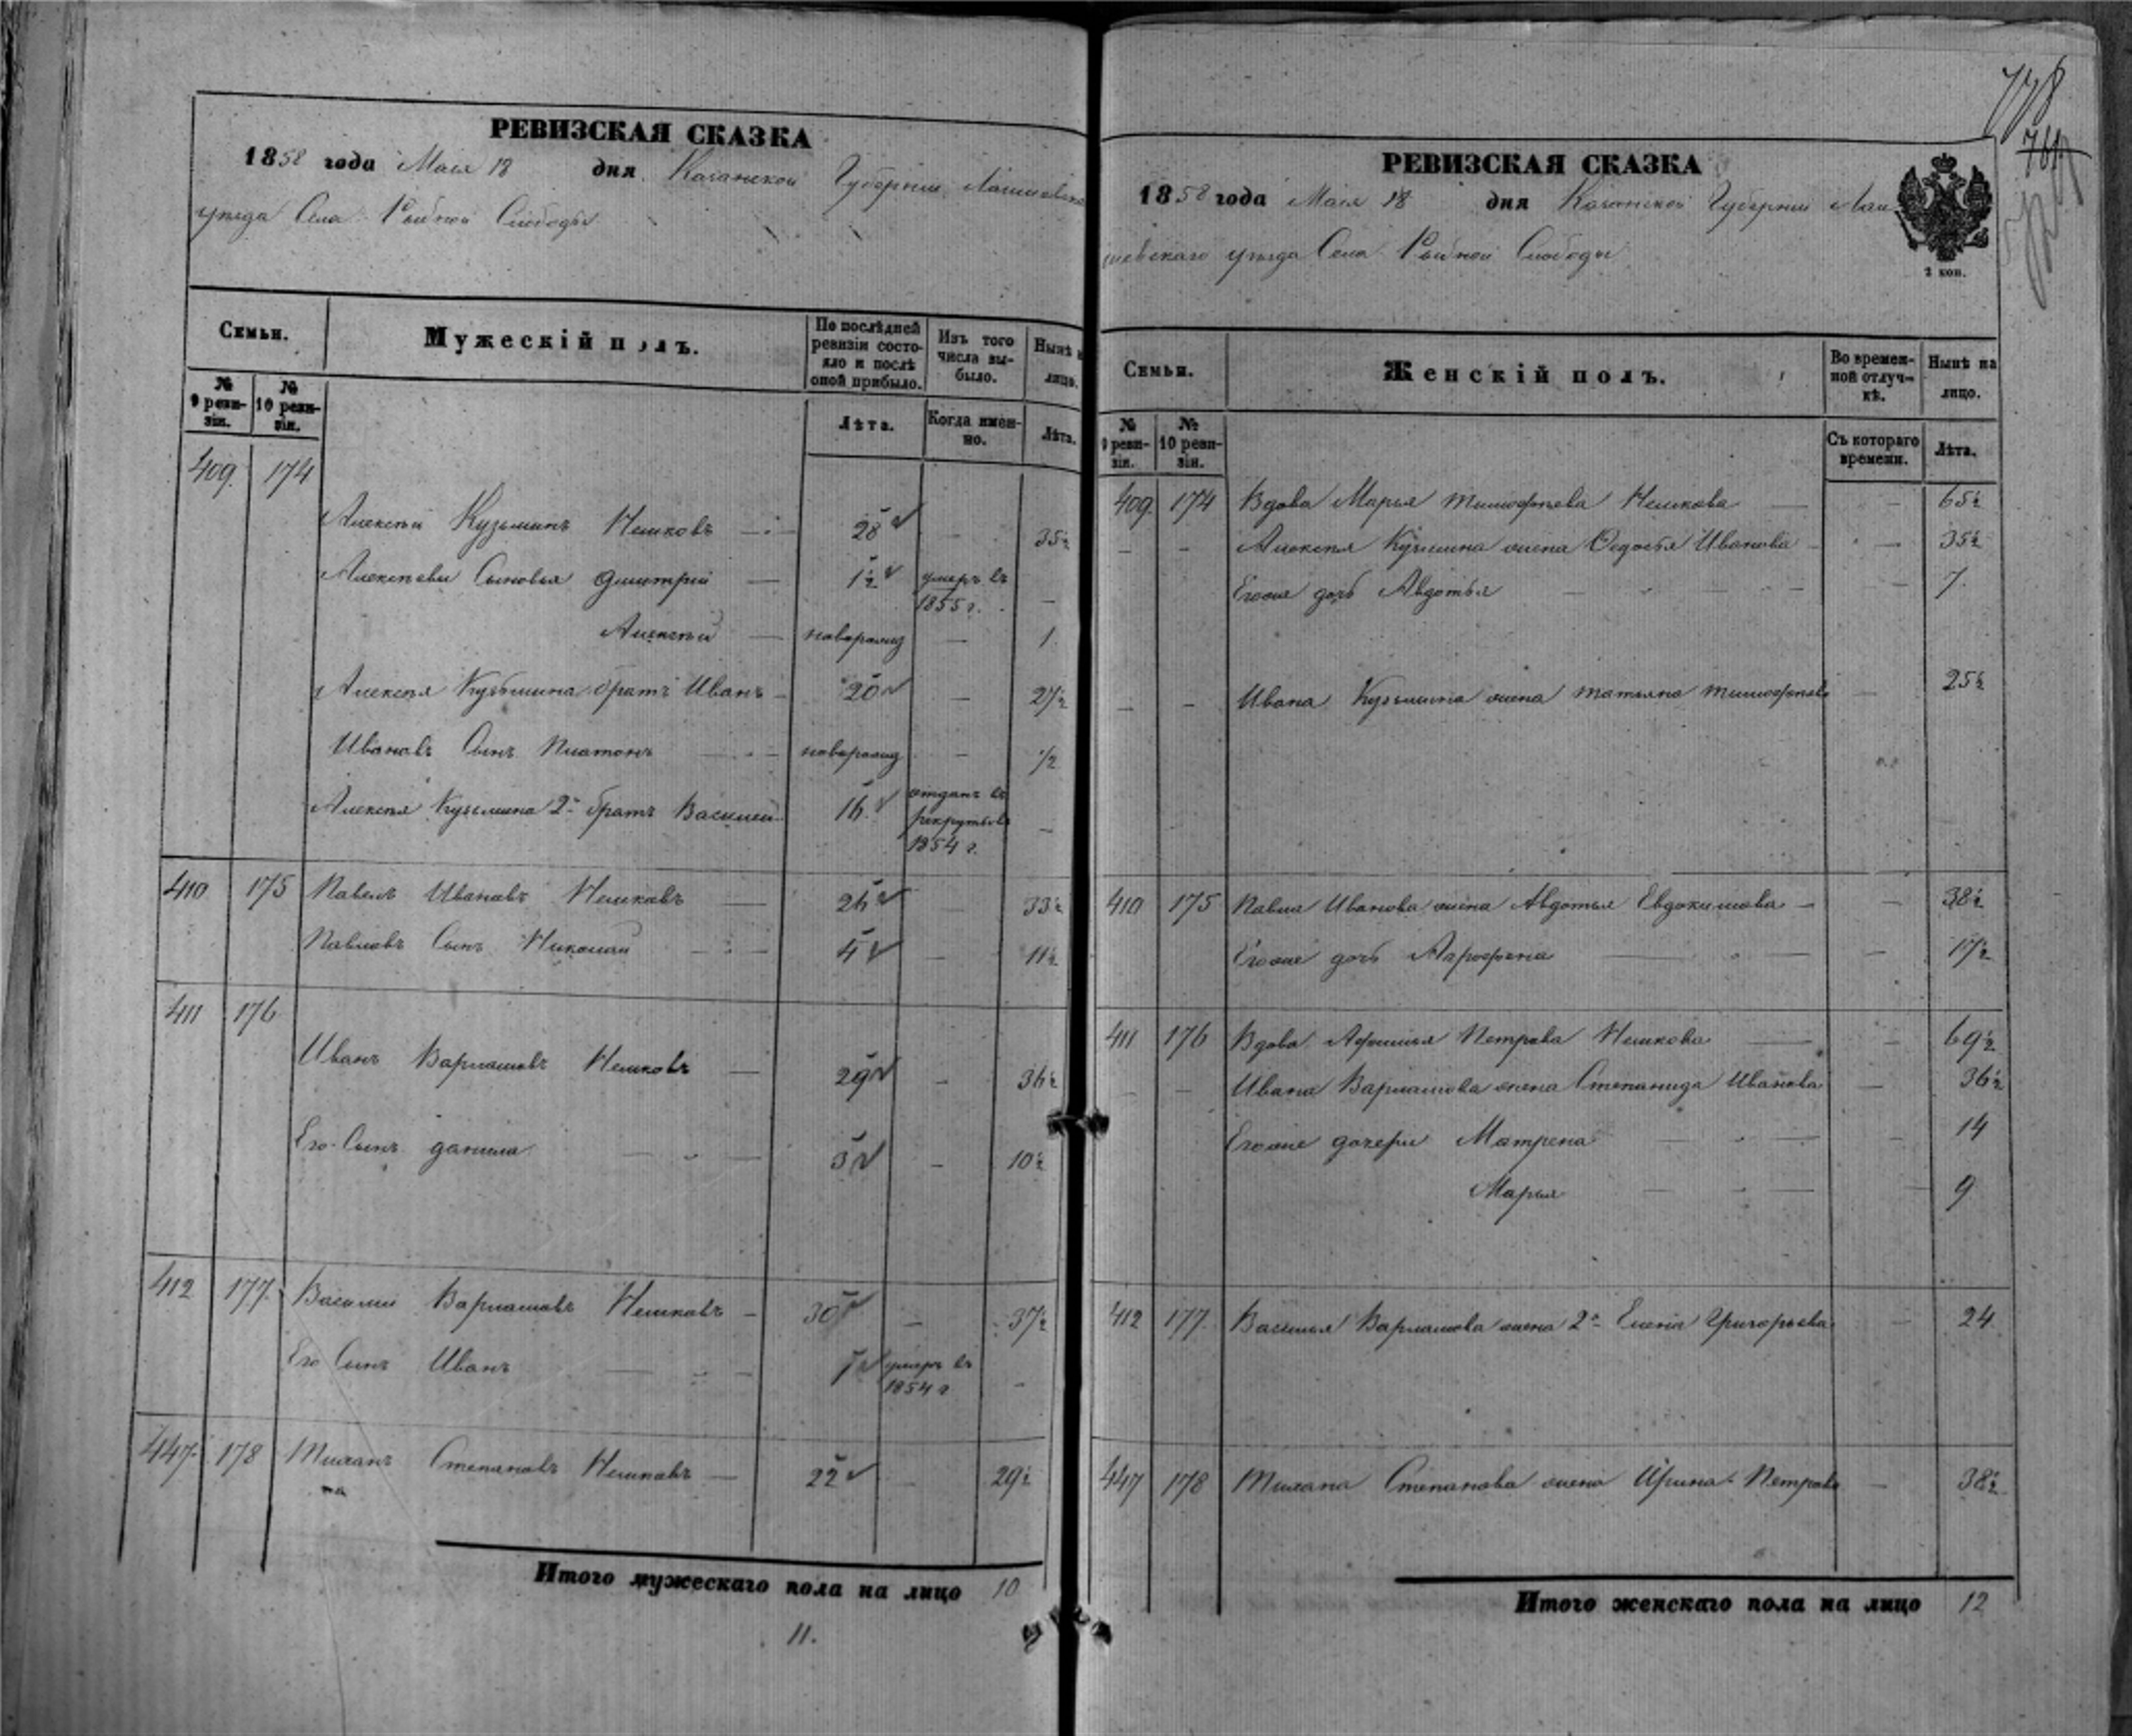 РЕВИЗСКАЯ СКАЗКА
1858 года Маия 18 дня Казанской Губернии Лаишевска
уѣзда Села Рыбной Слободы
Семьи.
Мужескій полъ.
По послѣдней ревизіи состояло и послѣ оной прибыло.
Изъ того числа выбыло.
Нынѣ на лицо.
№ 9 ревизіи.
№ 10 ревизіи.
Лѣта.
Когда именно.
Лѣта.
409. 174
Алексѣй Кузьминъ Нешковъ — 28 — 35½
Алексѣевы Сыновья Дмитрій — 1½ умеръ въ 1855 г. —
Алексѣй — новорожд — 1.
Алексѣя Кузьмина братъ Иванъ — 20 — 27½
Ивановъ Сынъ Платонъ — новорожд — ½
Алексѣя Кузьмина 2й братъ Василей 16. отданъ въ рекруты въ 1854 г. —
410 175 Павелъ Ивановъ Нешковъ — 26 33½
Павловъ Сынъ Николай — 4 — 11½
411 176
Иванъ Варламовъ Нешковъ — 29 — 36½
Его Сынъ Данила — 3 — 10½
412 177. Василий Варламовъ Нешковъ — 30 — 37½
Его Сынъ Иванъ — 7 умеръ въ 1854 г —
447. 178 Степановъ Нешковъ — 22 — 29½
Итого мужескаго пола на лицо 10
11.
778
РЕВИЗСКАЯ СКАЗКА
1858 года Маия 18 дня Казанской Губернии Лаи
шевскаго уѣзда Села Рыбной Слободы
2 коп.
Семьи.
Женскій полъ.
Во временной отлучкѣ.
Нынѣ на лицо.
№ 9 ревизіи.
№ 10 ревизіи.
Съ котораго времени.
Лѣта.
409. 174 Вдова Марья Тимофѣева Нешкова — — 65½
— — Алексѣя Кузьмина жена Федосья Иванова — — 35½
Егоже дочь Авдотья — — 7.
— — Ивана Кузьмина жена Татьяна Тимофѣева — 25½
410 175 Павла Иванова жена Авдотья Евдокимова — — 38½
Егоже дочь Аграфена — — 17½
411 176 Вдова Афимья Петрова Нешкова — — 69½
— — Ивана Варламова жена Степанида Иванова — 36½
Егоже дочери Матрена — — 14
Марья — — 9
412 177. Василья Варламова жена 2я Елена Григорьева — 24
447 178 Степанова жена Ирина Петрова — 38½
Итого женскаго пола на лицо 12